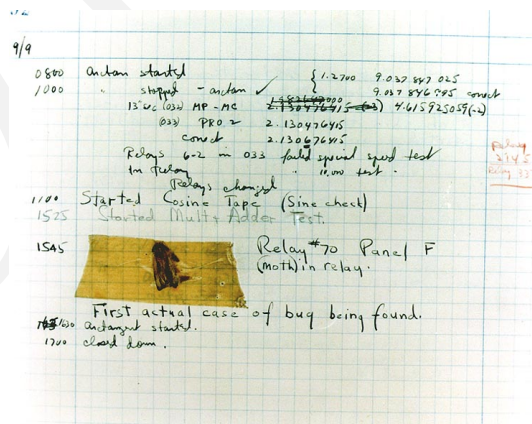 9/9
0800 arctan started
1000 " stopped - arctan ✓ { 1.2700 9.037 847 025
9.037 846 795 correct
13"uc (032) MP-MC 2.130476415 (-3) 4.615925059(-2)
(033) PRO 2 2.130476415
correct 2.130676415
Relays 6-2 in 033 failed special speed test
In Relay " 10,000 test.
Relay
2145
Relay 33
Relays changed
1100 Started Cosine Tape (Sine check)
1525 Started Mult + Adder Test.
1545 Relay #70 Panel F
(moth) in relay.
First actual case of bug being found.
1630 arctangent started.
1700 closed down.